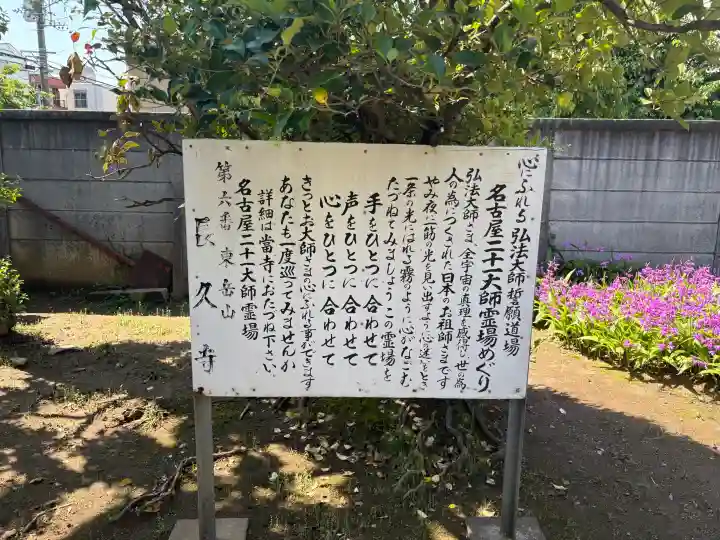 心にふれる 弘法大師誓願道場
名古屋二十一大師霊場めぐり
弘法大師さま、全宇宙の真理を極め、世の為
人の為につくされた日本のお祖師さまです
やみ夜に一筋の光を見い出すよう心の迷いをとき
一条の光にはれる霧のように心がなごむ
たづねてみましょう この霊場を
手をひとつに 合わせて
声をひとつに 合わせて
心をひとつに 合わせて
きっとお大師さまの心にふれる事ができます
あなたも一度巡ってみませんか
詳細は當寺におたづね下さい。
名古屋二十一大師霊場
第六番 東岳山
長久寺